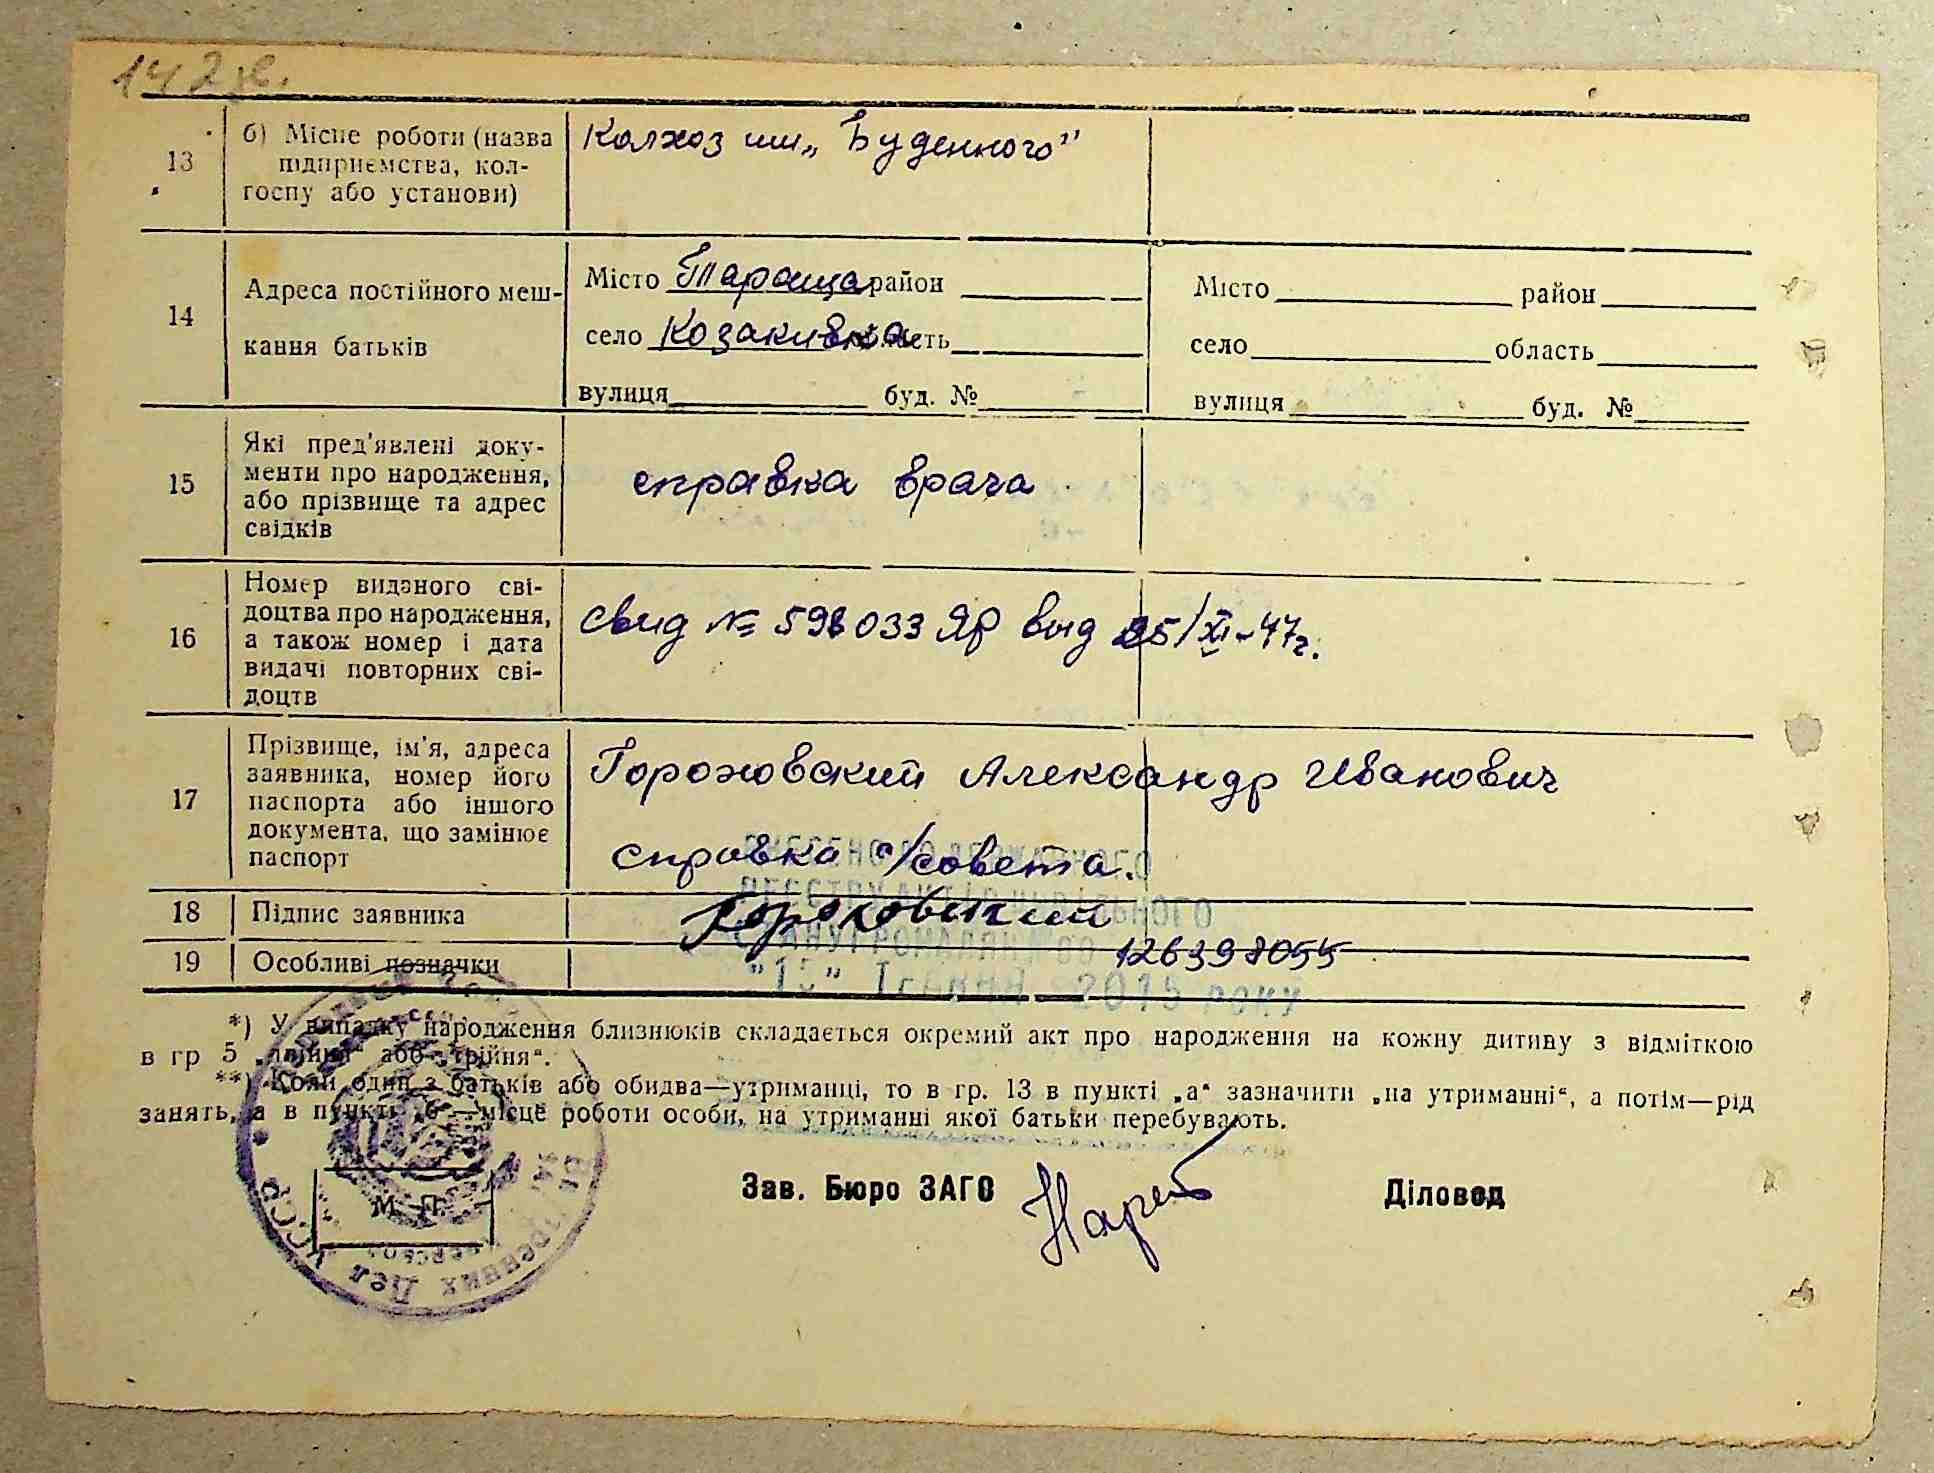 142
13
б) Місце роботи (назва
підприємства, кол-
госпу або установи)
Колхоз им „Буденного"
14
Адреса постійного меш-
кання батьків
Місто Тараща район
село Козакивка область
вулиця буд. №
Місто район
село область
вулиця буд. №
15
Які пред'явлені доку-
менти про народження,
або прізвище та адрес
свідків
справка врача
16
Номер виданого сві-
доцтва про народження,
а також номер і дата
видачі повторних сві-
доцтв
Свид № 598033 ЯР выд 25/XI-47г.
17
Прізвище, ім'я, адреса
заявника, номер його
паспорта або іншого
документа, що замінює
паспорт
Гороховский Александр Иванович
справка с/совета.
ВНЕСЕНО ДО ДЕРЖАВНОГО
РЕЄСТРУ АКТІВ ЦИВІЛЬНОГО
СТАНУ ГРОМАДЯН ЗА
18 Підпис заявника
Гороховский
19 Особливі позначки
126398055
"15" Травня 2015 року
*) У випадку народження близнюків складається окремий акт про народження на кожну дитину з відміткою
в гр 5 „двійня“ або „трійня“.
**) Коли один з батьків або обидва—утриманці, то в гр. 13 в пункті „а“ зазначити „на утриманні“, а потім—рід
занять, а в пункті „б“—місце роботи особи, на утриманні якої батьки перебувають.
М. П.
Внутренних Дел УССР
Зав. Бюро ЗАГС
Діловод